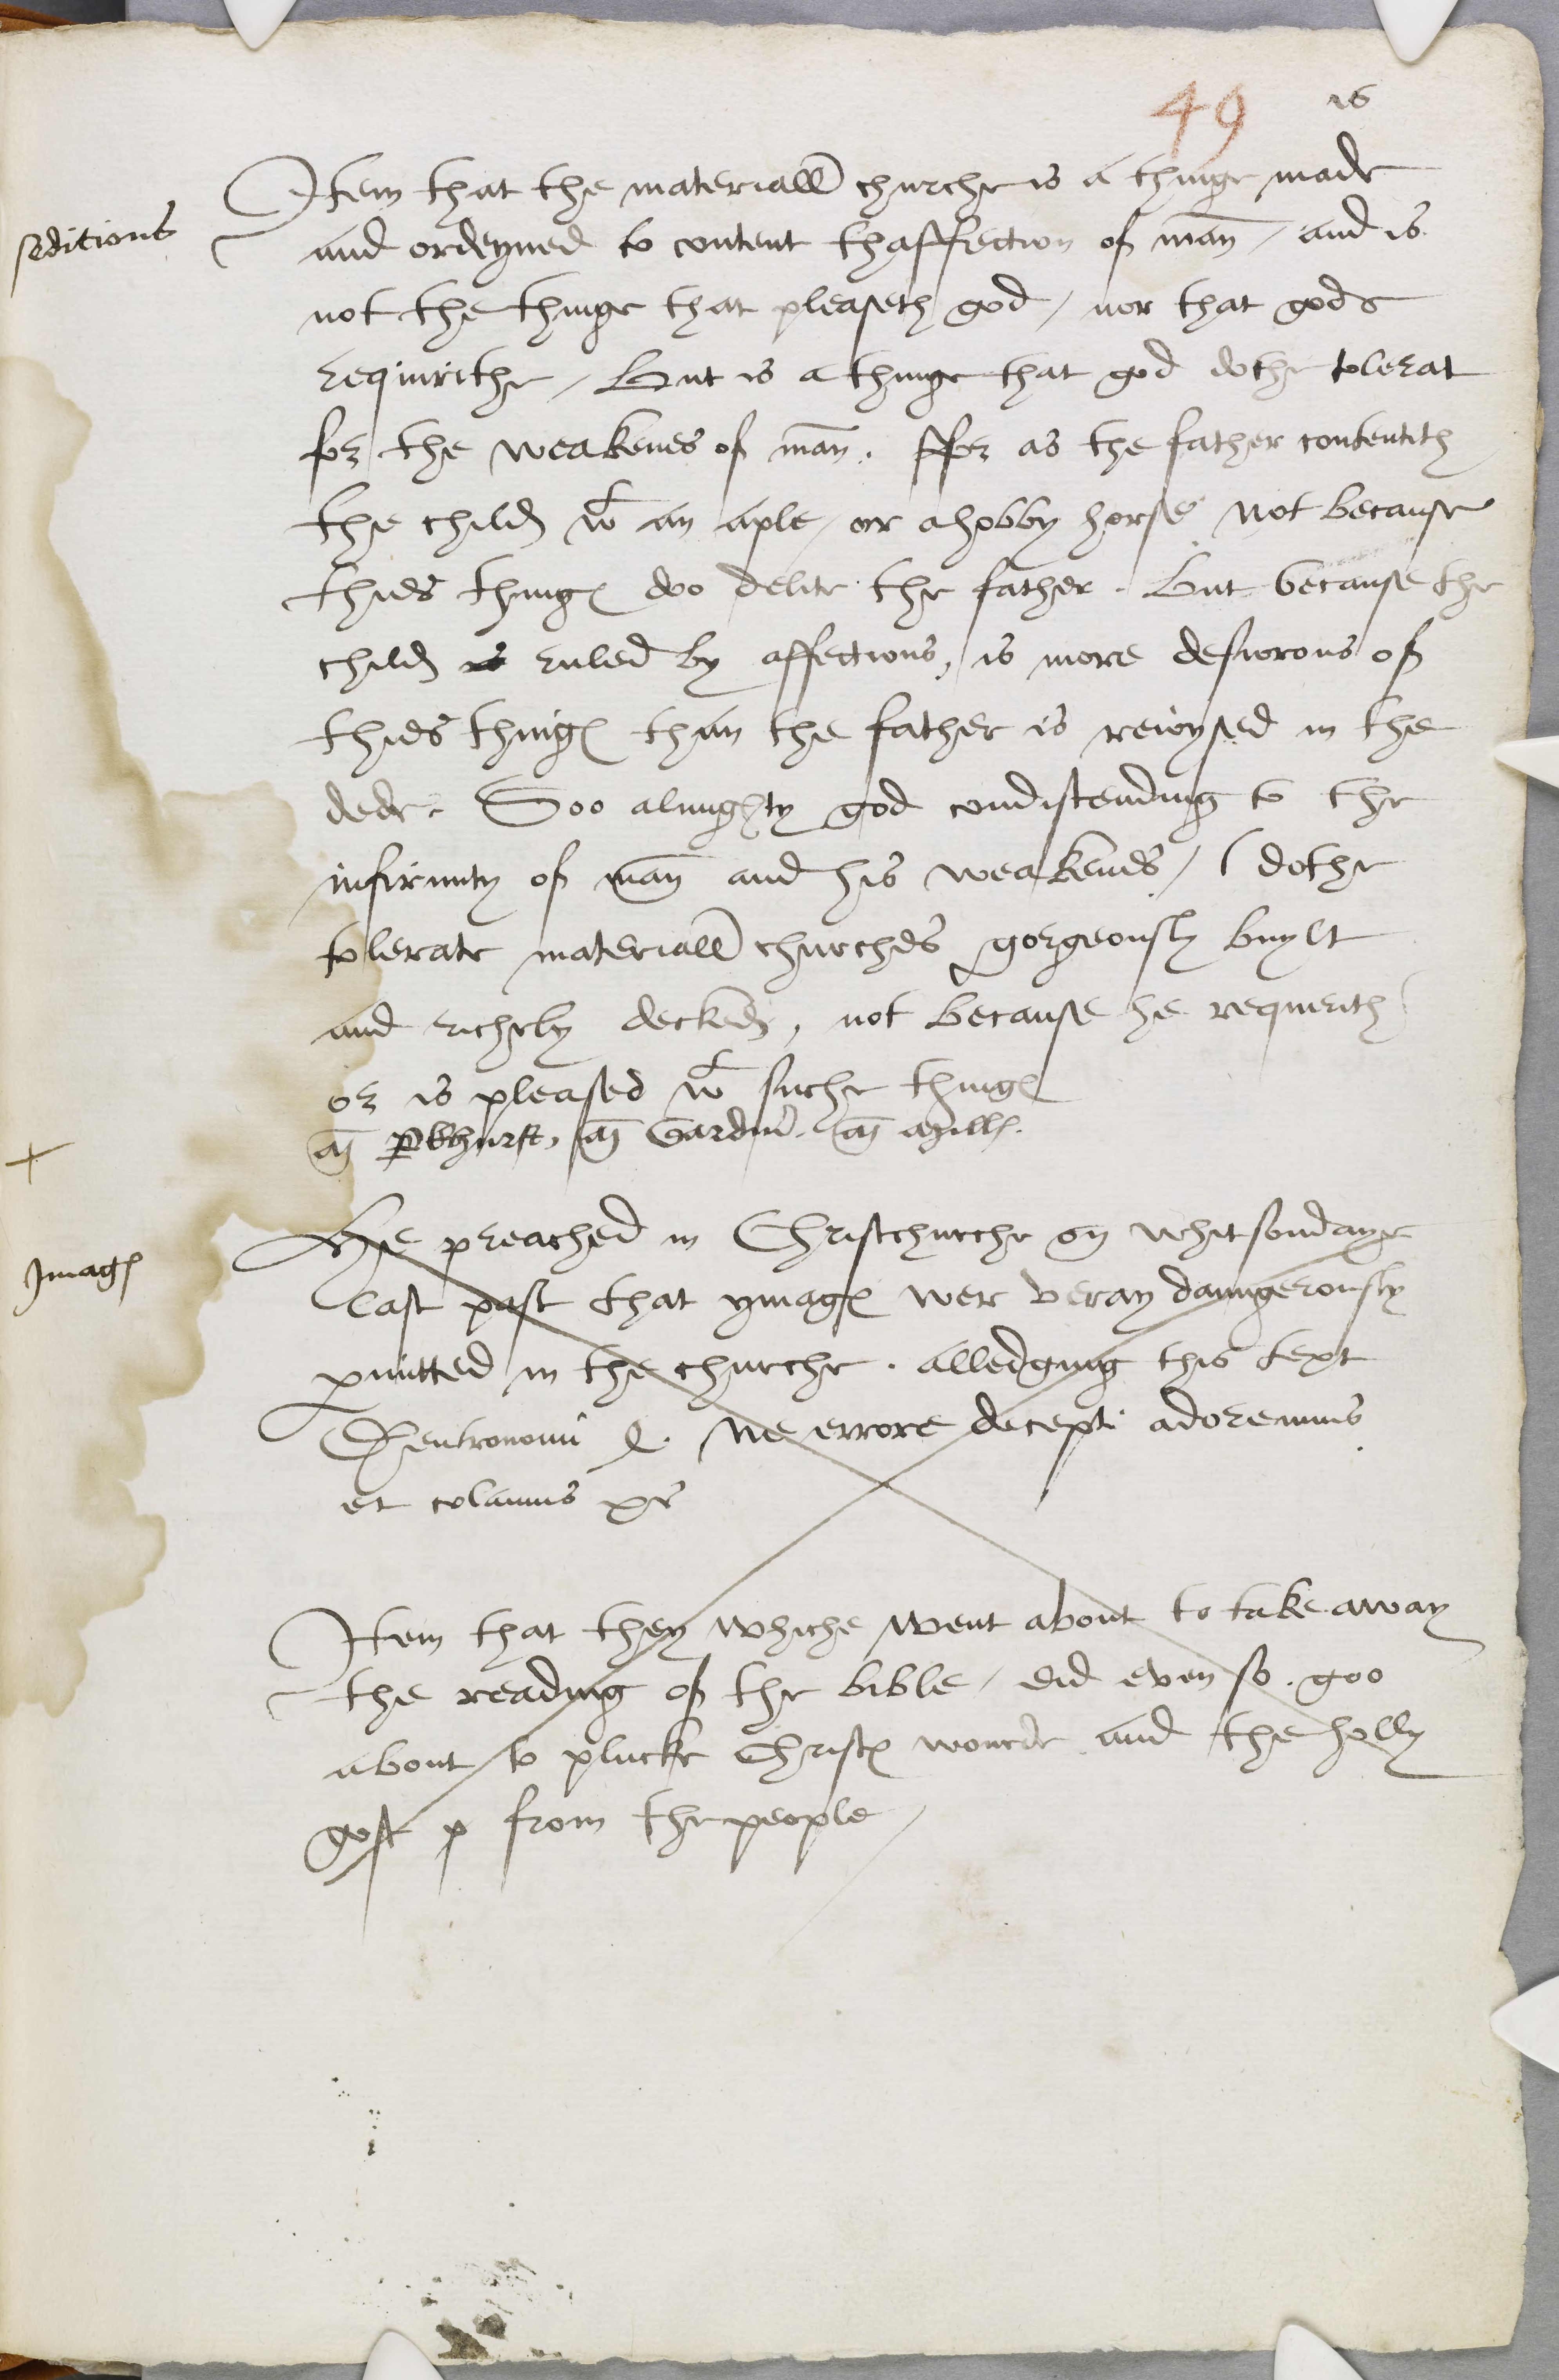 49 16
Item that the materiall churche is a thinge made
seditious
and ordeyned to content thaffection of man / and is
not the thinge that pleaseth god / nor that gode
requirithe / But is a thinge that god dothe tolerat
for the weakenes of man . ffor as the father contentith
the child wt an aple / or a hobby horse not because
thies things doo delite the father . But because the
child is ruled by affections, is more desiorous of
thies things than the father is reioysed in the
dede . Soo almighty god condistending to the
infirmity of man and his weakenes / dothe
tolerate materiall churches gorgeously buylt
and richely decked, not because he requerith
or is pleased wt suche things
Parkhurst, Gardin̄.
+
He preached in Christchurche on whitsondaye
Images
last past that ymages wer veray daungerously
pmitted in the churche . alledging this text
Deutronomii Ne errore decepti adoremus
et colamus
Item that they whiche went about to take away
the reading of the bible / did even so goo
about to plucke Christes wourde and the holly
gost p from the people /